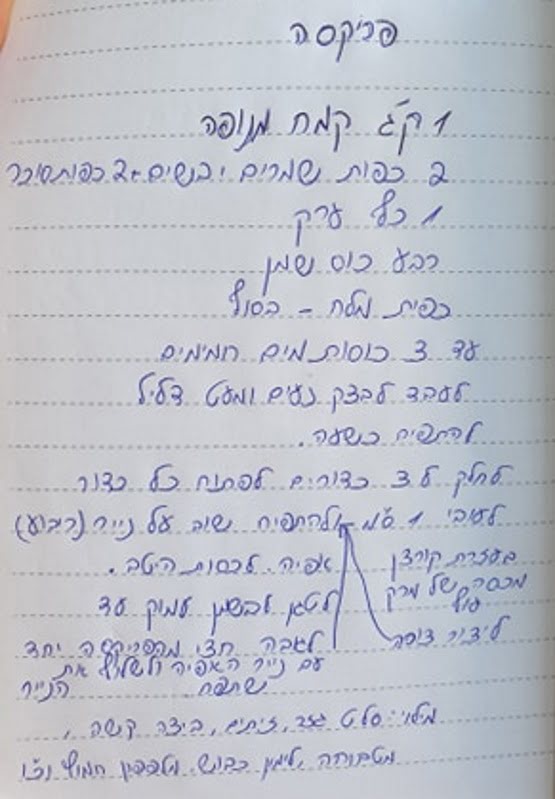 פריקסה
1 ק"ג קמח מנופה
2 כפות שמרים יבשים + 2 כפות סוכר
1 כף ערק
רבע כוס שמן
כפית מלח - בסוף
עד 3 כוסות מים חמימים
לעבד לבצק נעים ומעט דליל
להתפיח כשעה.
לחלק ל 3 כדורים לפתוח כל כדור
לעובי 1 ס"מ ולהתפיח שוב על נייר (ריבוע)
אפיה. לכסות היטב.
בעזרת קורצן
מכסה של מרק
עוף
ליצור צורה
לטגן בשמן עמוק עד
לגבה חצי מהפריקסה יחד
עם נייר האפיה ולשלוף את
הנייר
שנתפח.
מילוי: סלט גזר, זיתים, ביצה קשה,
מטבוחה, לימון כבוש, מלפפון חמוץ וכו